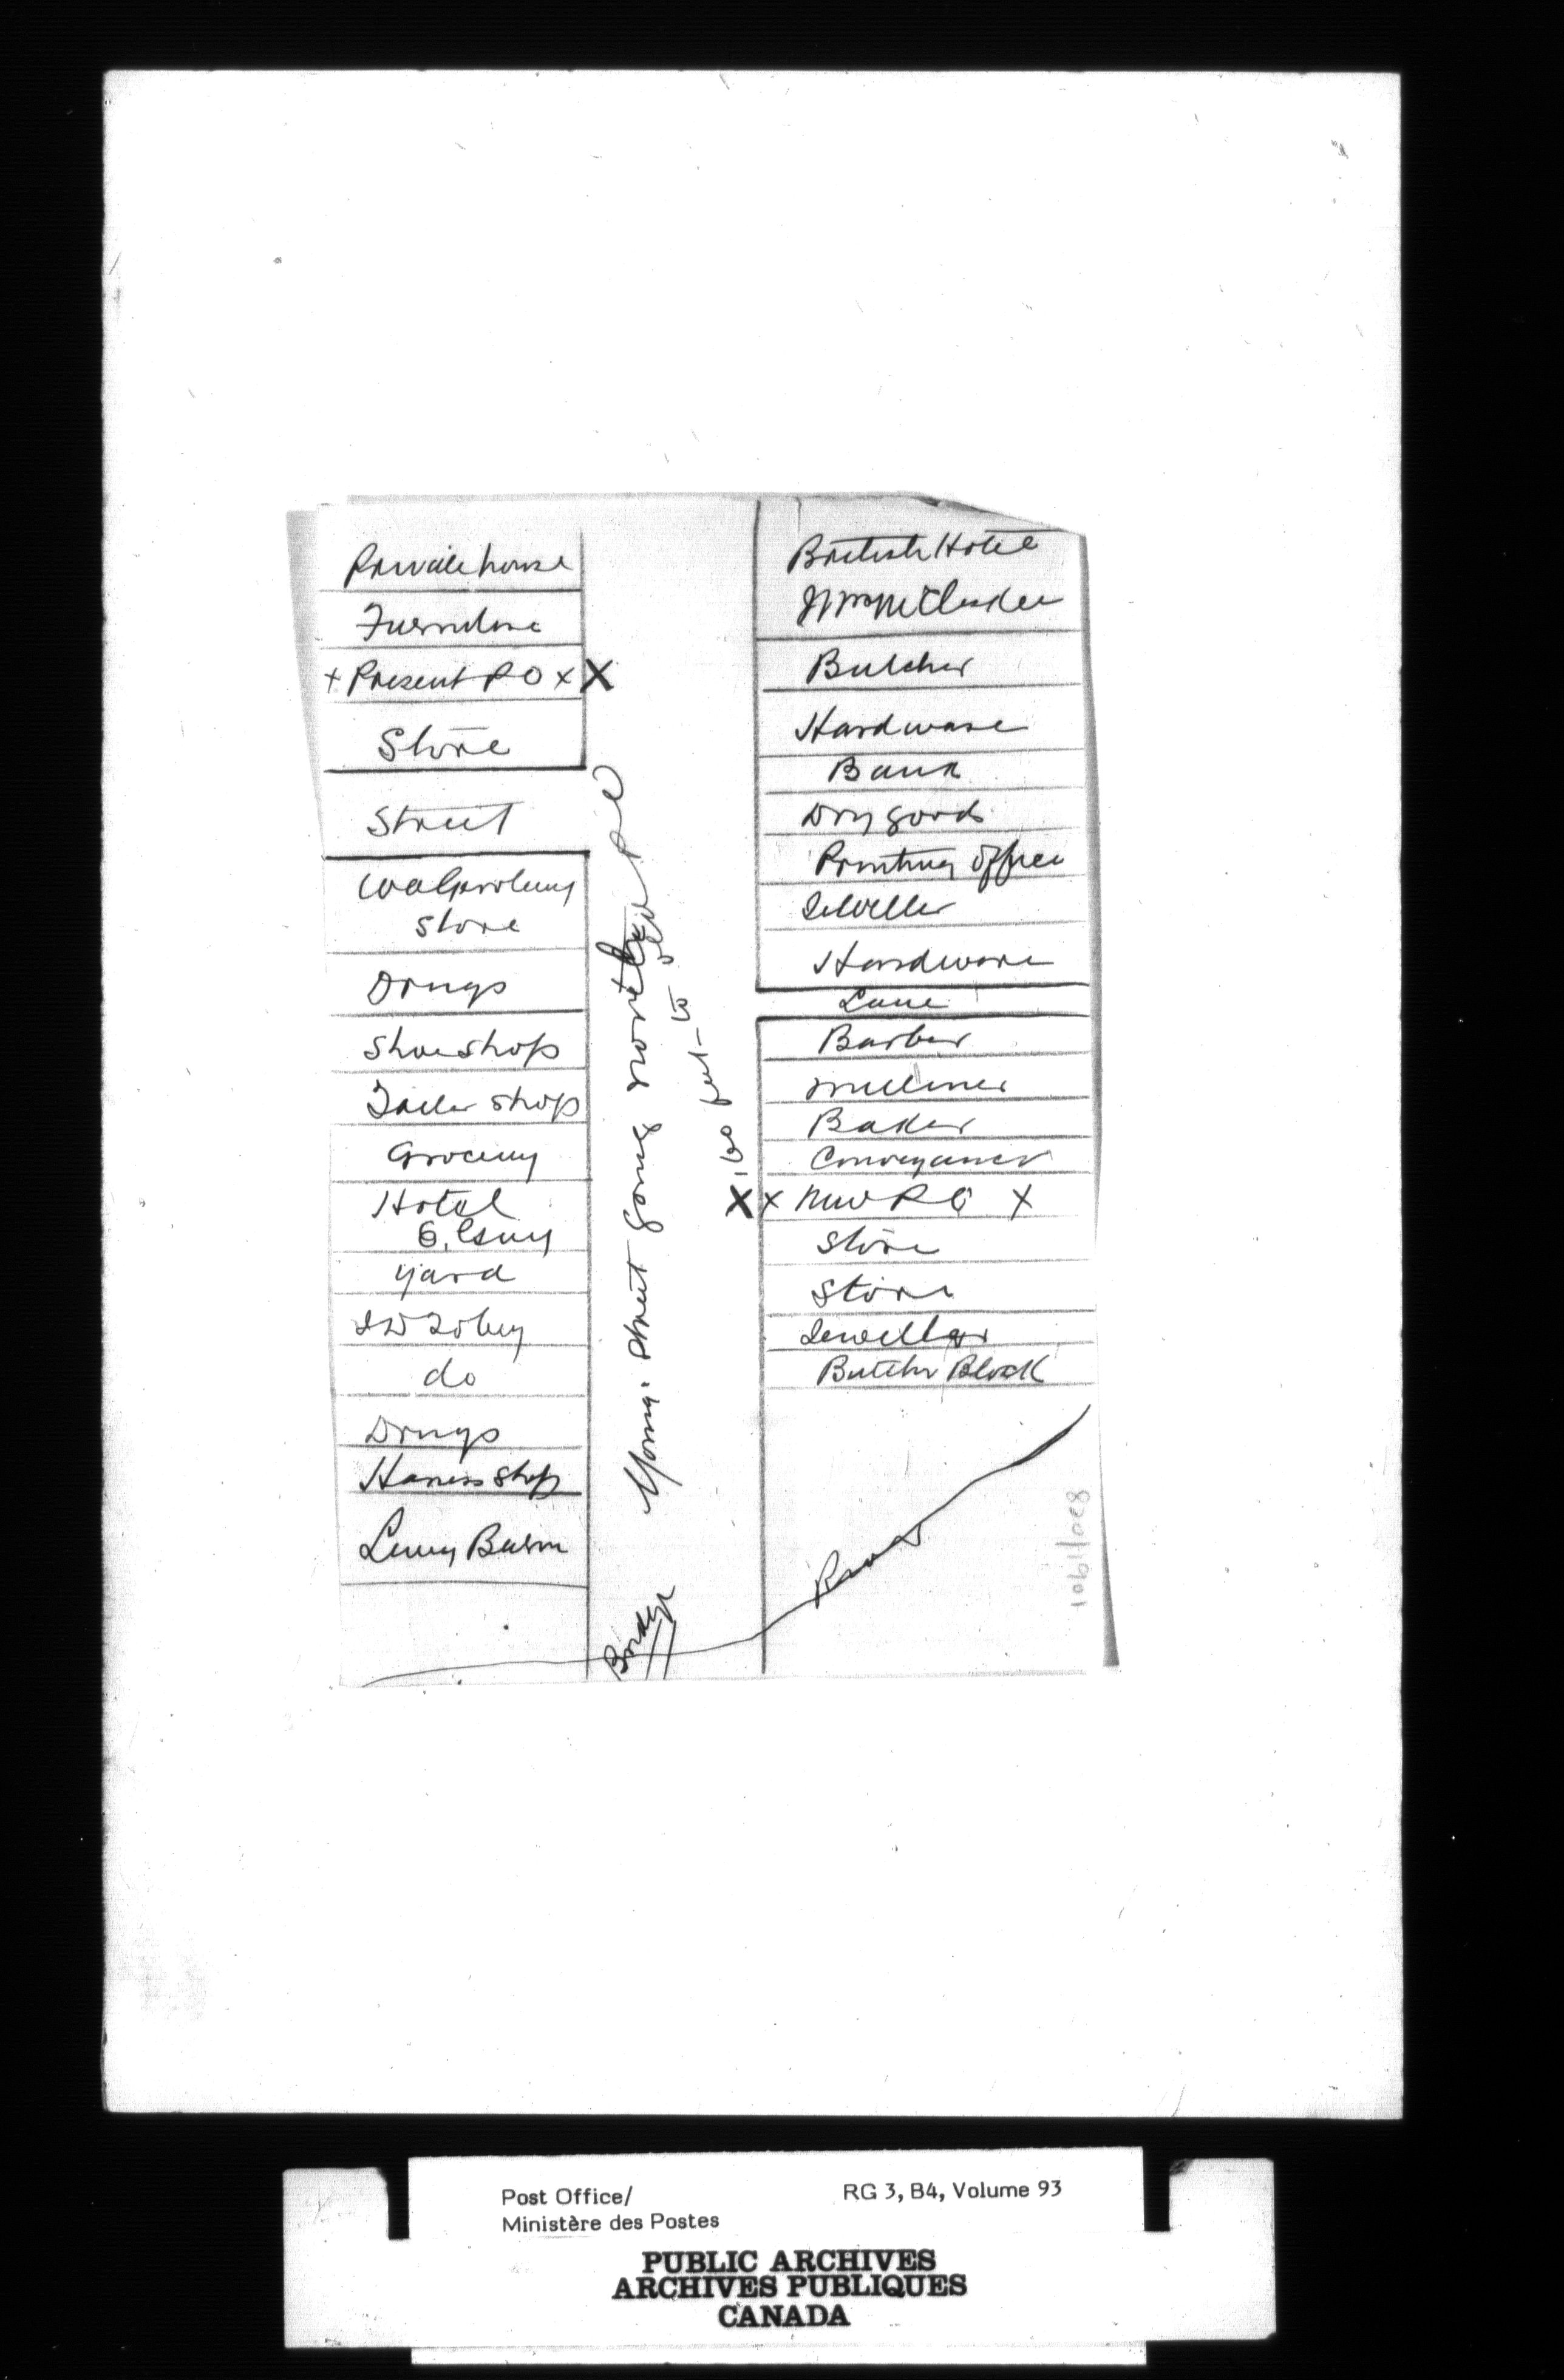 Private house
Furniture
+ Present P O x X
Store
Street
Store
Drugs
Shoe shop
Tailor shop
Grocery
Hotel
yard
do
Drugs
Harness shop
Livery Barn
Yonge street going north
feet to old P O
Bridge
British Hotel
Butcher
Hardware
Bank
Dry goods
Printing office
Jeweller
Hardware
Lane
Barber
milliner
Baker
Conveyancer
X x New P O X
Store
Store
Jeweller
Butcher Block
Road
830/1901
Post Office/
Ministère des Postes
RG 3, B4, Volume 93
PUBLIC ARCHIVES
ARCHIVES PUBLIQUES
CANADA